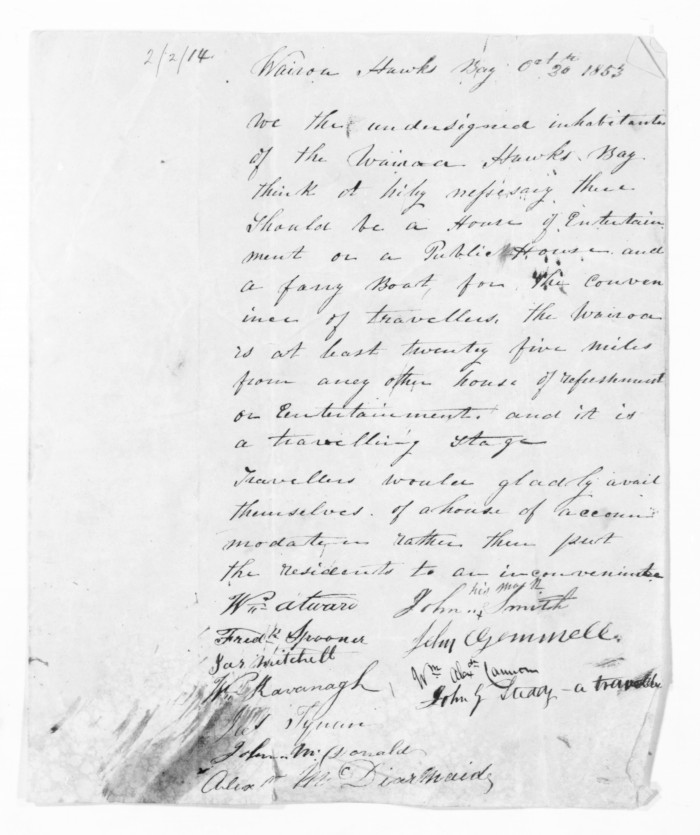 2/2/14
Wairoa Hawks Bay Oct 20th 1853
We the undersigned inhabitants
of the Wairoa Hawks Bay
think it hily nessesary there
Should be a House of Entertain
ment or a Public House and
a farry Boat, for the conven
ince of travellers, the Wairoa
is at least twenty five miles
from aney other house of refreshment
or Entertainment. and it is
a travelling Stage
Travellers would gladly avail
themselves of a house of accom
modation rather then put
the residents to an inconvenience
Wm Atward John his mark x Smith
Fredk Spooner John Gemmell
Jas Mitchell Wm Alexdr Cannon
Wm Kavanagh John G a traveller
Jas Tynan
John McDonald
Alexr McDiarmaid